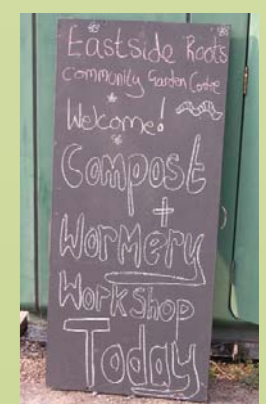 Eastside Roots
Community Garden Centre
Welcome!
Compost
+
Wormery
Workshop
Today